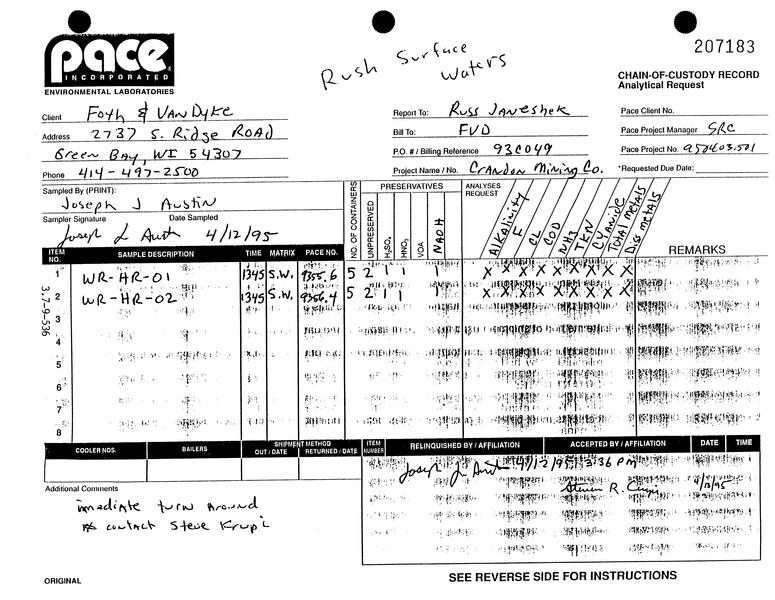 Rush Surface Waters
207183
pace
INCORPORATED
ENVIRONMENTAL LABORATORIES
CHAIN-OF-CUSTODY RECORD
Analytical Request
Client Foth & Van Dyke
Address 2737 S. Ridge Road
Green Bay, WI 54307
Phone 414-497-2500
Report To: Russ Janeshek
Bill To: FVD
P.O. # / Billing Reference 93C049
Project Name / No. Crandon Mining Co.
Pace Client No.
Pace Project Manager SRC
Pace Project No. 950403.501
*Requested Due Date:
Sampled By (PRINT):
Joseph J Austin
Sampler Signature Date Sampled
4/12/95
NO. OF CONTAINERS
PRESERVATIVES
UNPRESERVED
H2SO4
HNO3
VOA
NAOH
ANALYSES REQUEST
Alkalinity
F
CL
COD
NH3
TKN
Cyanide
Total metals
Diss metals
REMARKS
ITEM NO. SAMPLE DESCRIPTION TIME MATRIX PACE NO.
1 WR-HR-01 1345 S.W. 9355.6 5 2 1 1 1 X X X X X X X X X
2 WR-HR-02 1345 S.W. 9356.4 5 2 1 1 1 X X X X X X X X X
3
4
5
6
7
8
3.7-9-536
COOLER NOS. BAILERS SHIPMENT METHOD OUT / DATE RETURNED / DATE ITEM NUMBER RELINQUISHED BY / AFFILIATION ACCEPTED BY / AFFILIATION DATE TIME
4/12/95 3:36 PM
Additional Comments
imediate turn around
contact Steve Krupi
ORIGINAL
SEE REVERSE SIDE FOR INSTRUCTIONS